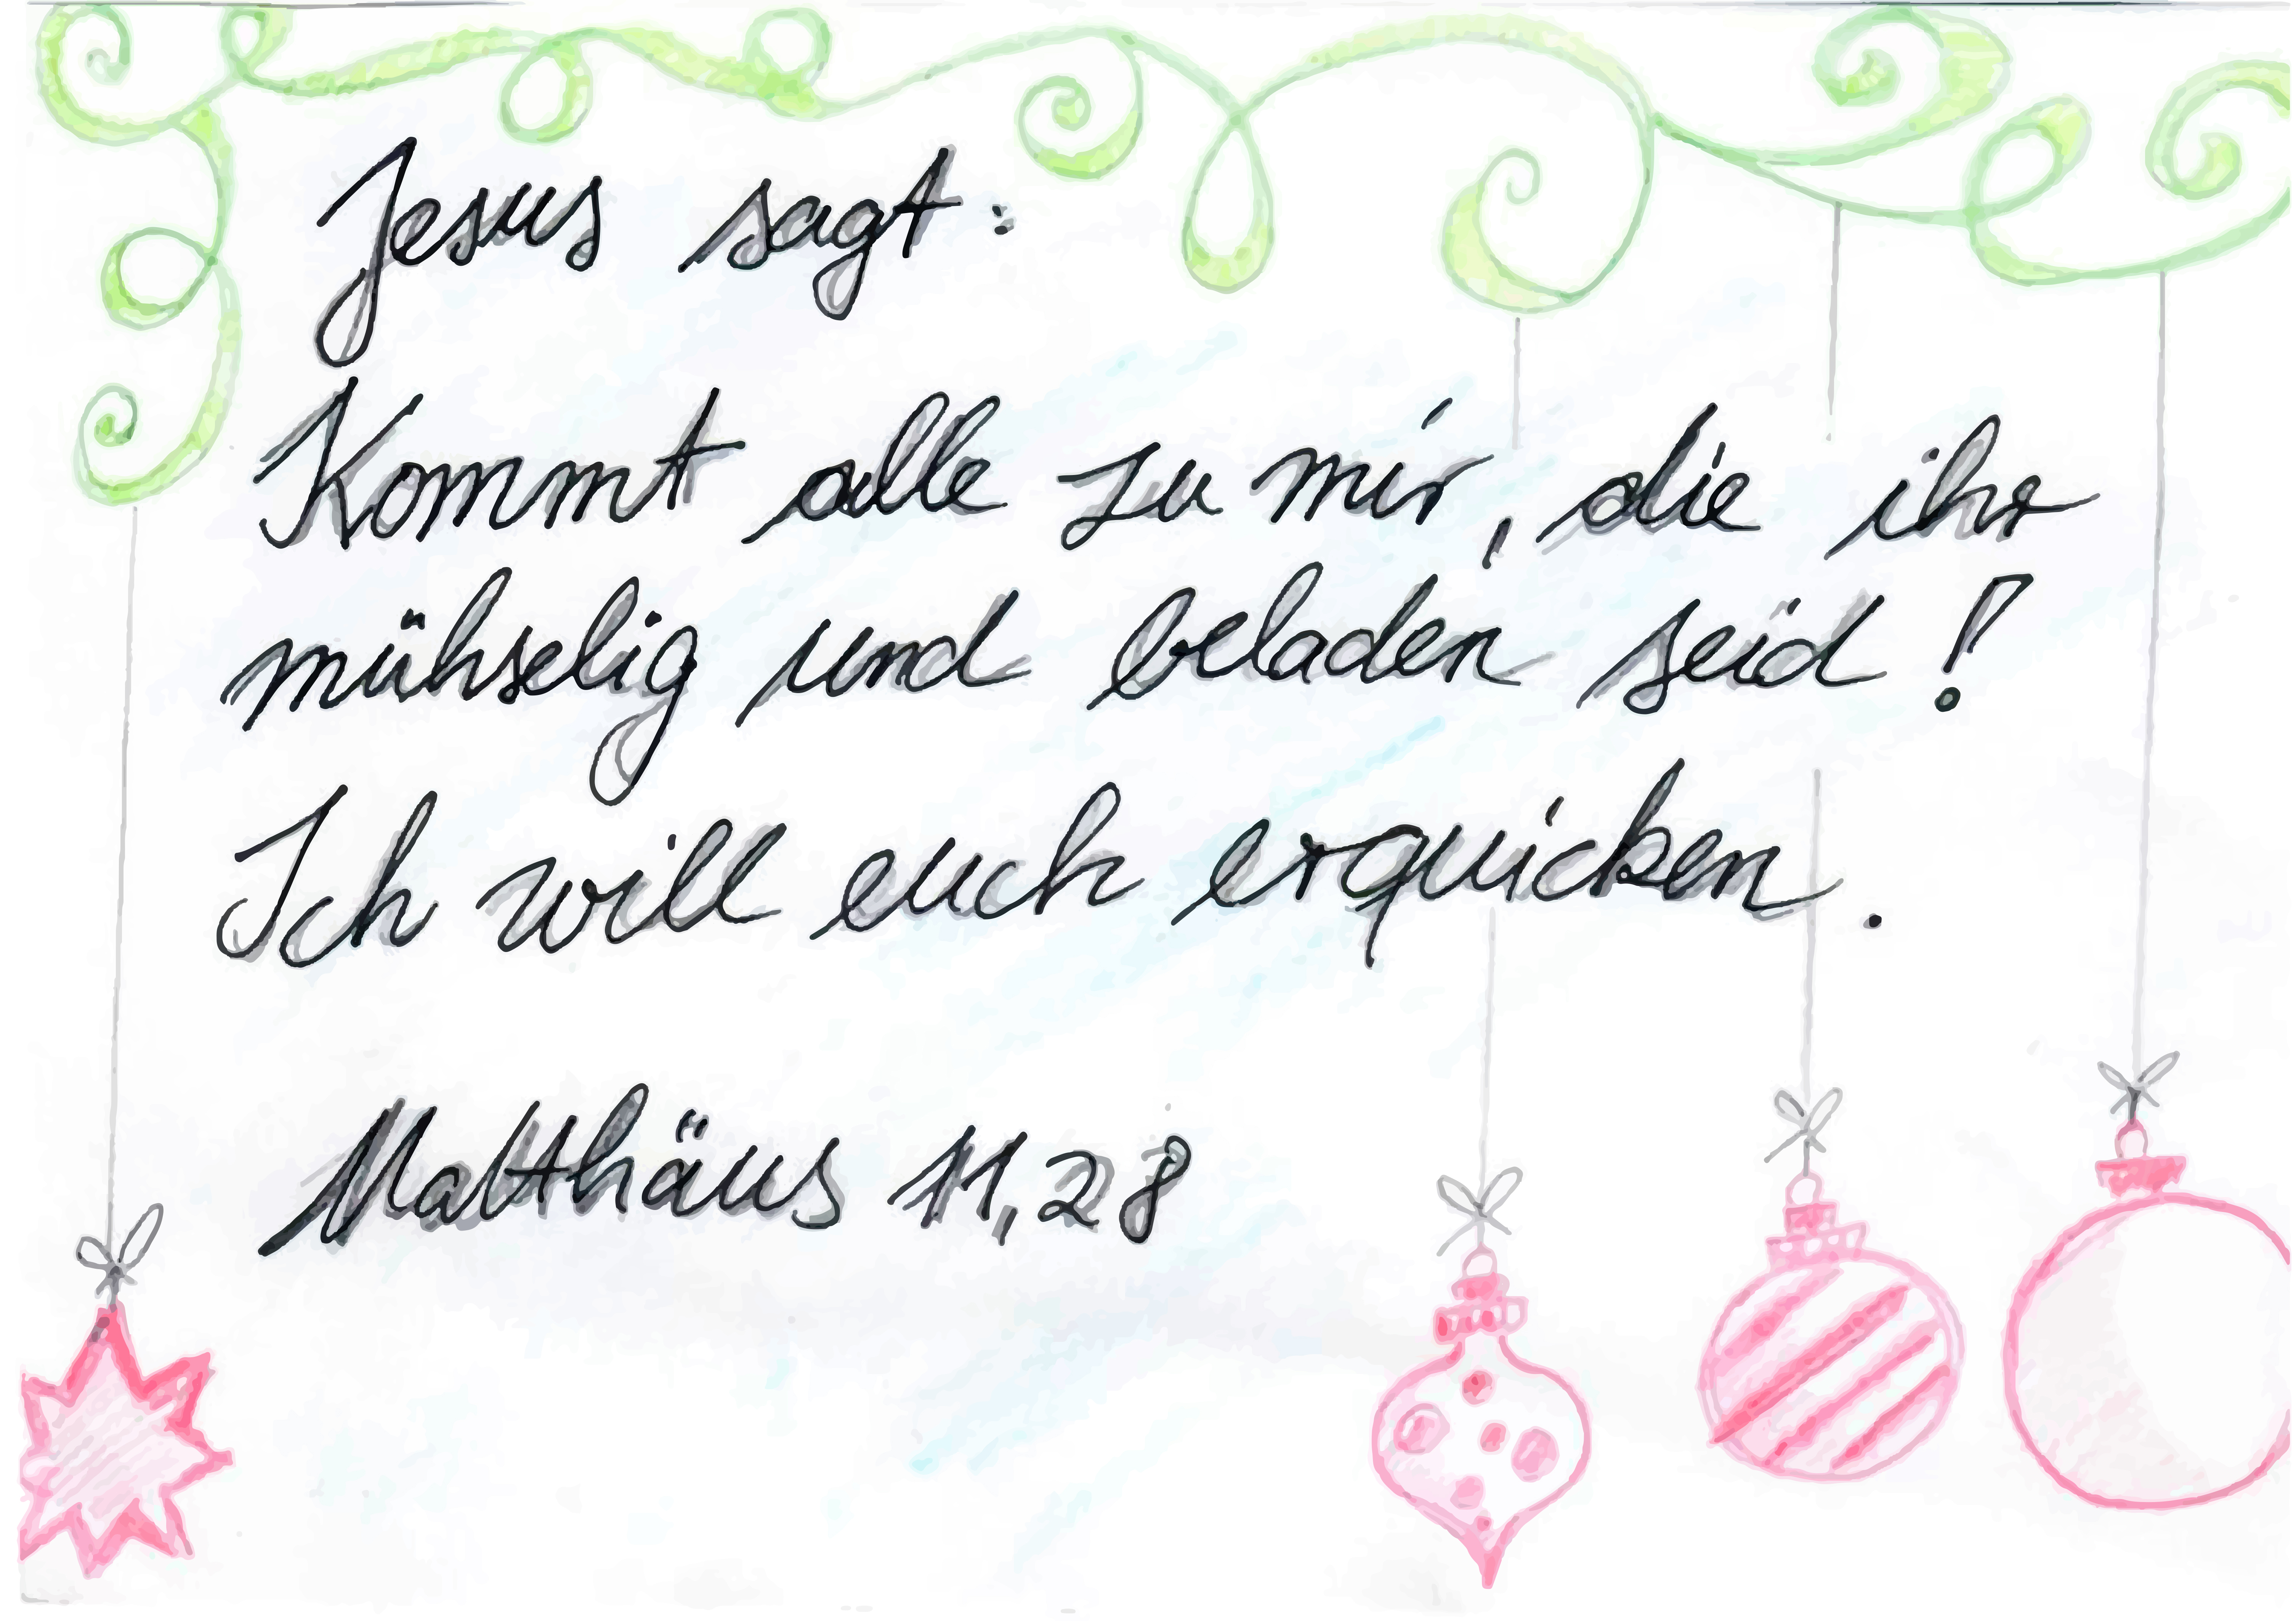 Jesus sagt:
Kommt alle zu mir, die ihr
mühselig und beladen seid!
Ich will euch erquicken.
Matthäus 11,28